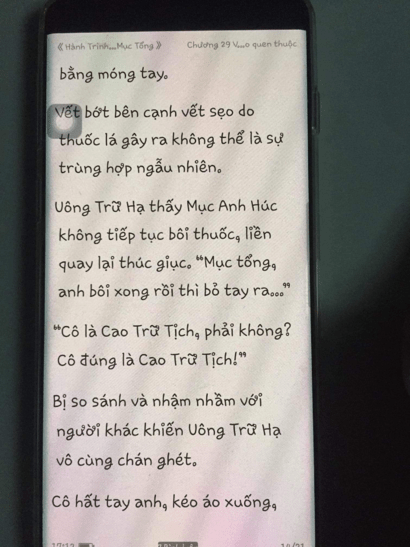 《Hành Trình...Mục Tổng》 Chương 29 V...o quen thuộc
bằng móng tay.
Vết bớt bên cạnh vết sẹo do
thuốc lá gây ra không thể là sự
trùng hợp ngẫu nhiên.
Uông Trữ Hạ thấy Mục Anh Húc
không tiếp tục bôi thuốc, liền
quay lại thúc giục. “Mục tổng,
anh bôi xong rồi thì bỏ tay ra...”
“Cô là Cao Trữ Tịch, phải không?
Cô đúng là Cao Trữ Tịch!”
Bị so sánh và nhậm nhầm với
người khác khiến Uông Trữ Hạ
vô cùng chán ghét.
Cô hất tay anh, kéo áo xuống,